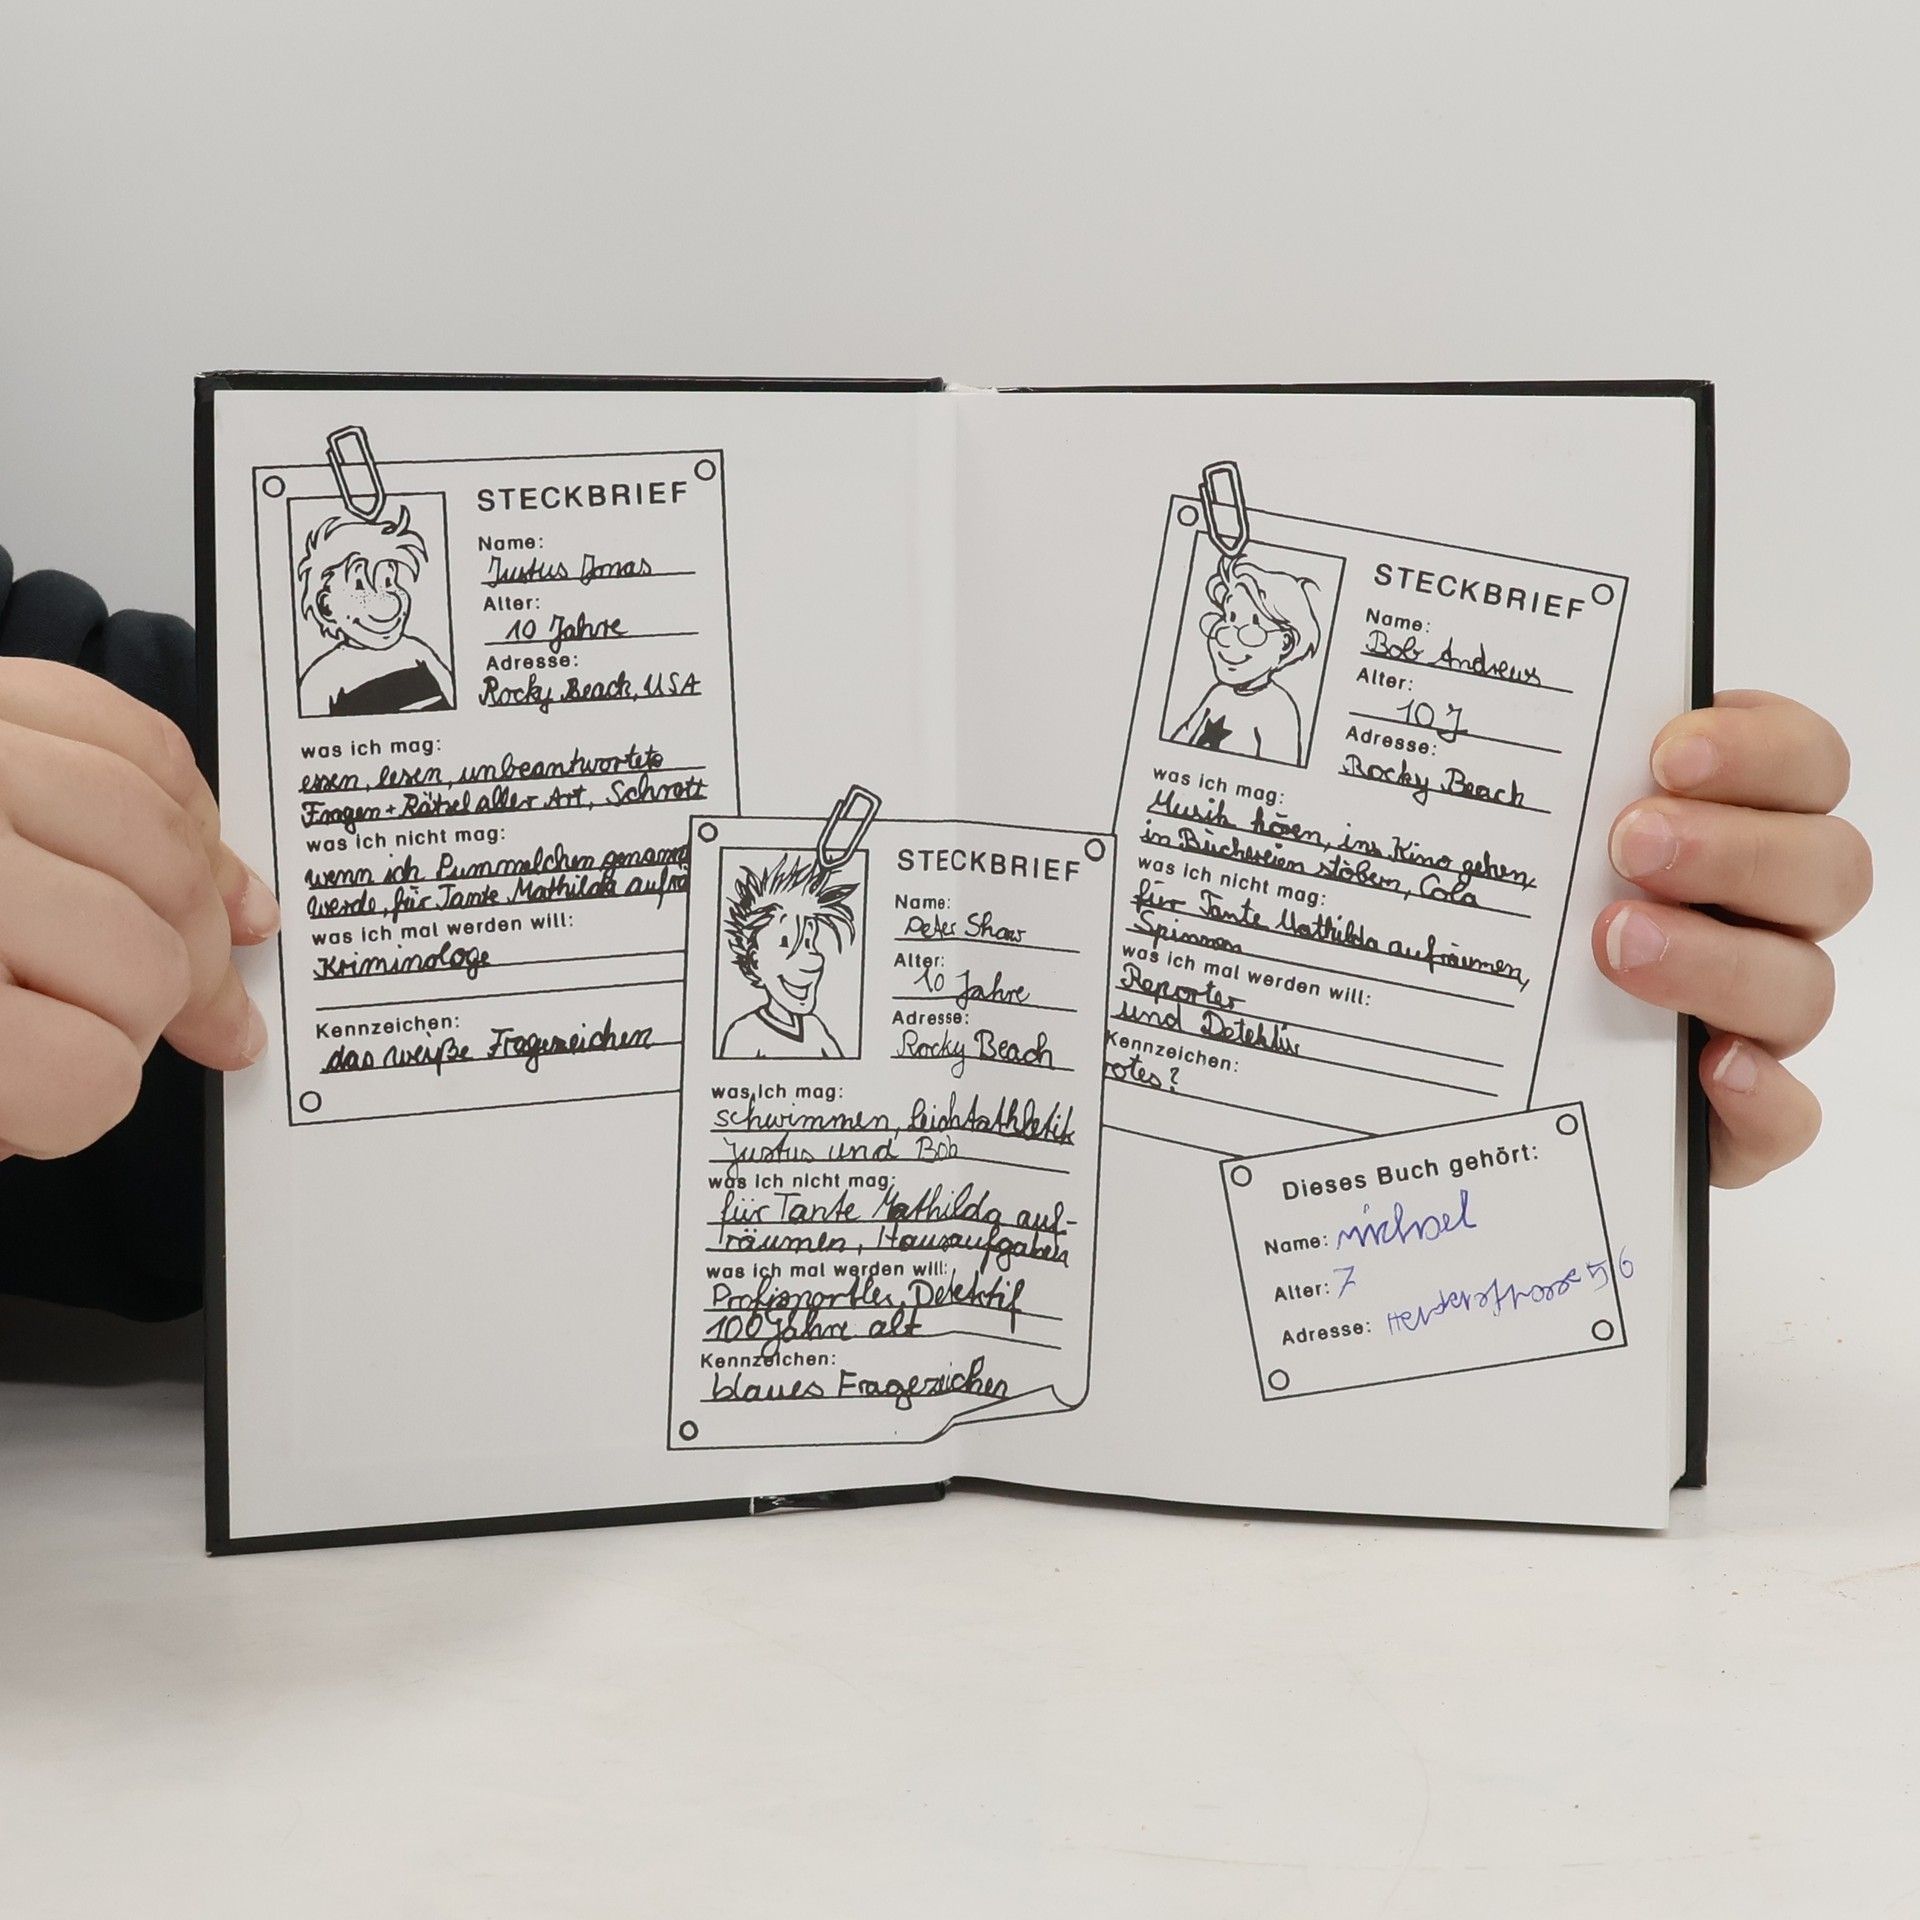 STECKBRIEF
Name:
Justus Jonas
Alter:
10 Jahre
Adresse:
Rocky Beach, USA
was ich mag:
essen, lesen, unbeantwortete
Fragen + Rätsel aller Art, Schrott
was ich nicht mag:
wenn ich Pummelchen genannt
werde, für Tante Mathilda aufrä
was ich mal werden will:
Kriminologe
Kennzeichen:
das weiße Fragezeichen
STECKBRIEF
Name:
Peter Shaw
Alter:
10 Jahre
Adresse:
Rocky Beach
was ich mag:
schwimmen, Leichtathletik
Justus und Bob
was ich nicht mag:
für Tante Mathilda auf-
räumen, Hausaufgaben
was ich mal werden will:
Profisportler, Detektif
100 Jahre alt
Kennzeichen:
blaues Fragezeichen
STECKBRIEF
Name:
Bob Andrews
Alter:
10 J
Adresse:
Rocky Beach
was ich mag:
Musik hören, ins Kino gehen,
in Büchereien stöbern, Cola
was ich nicht mag:
für Tante Mathilda aufräumen,
Spinnen
was ich mal werden will:
Reporter
und Detektiv
Kennzeichen:
rotes ?
Dieses Buch gehört:
Name: Michael
Alter: 7
Adresse: 56